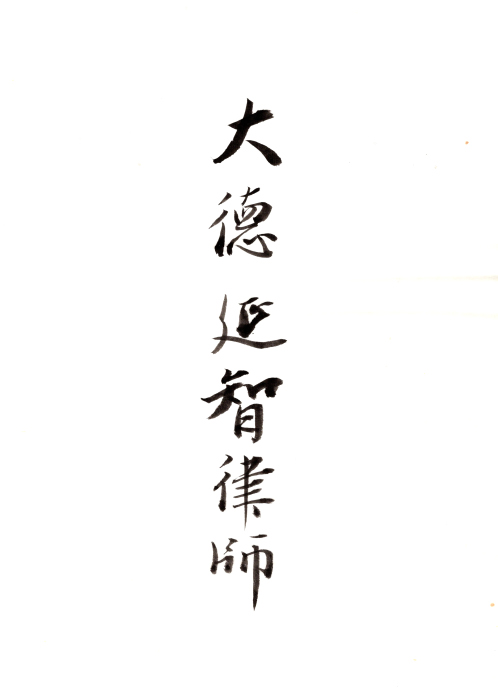 大德延智律師